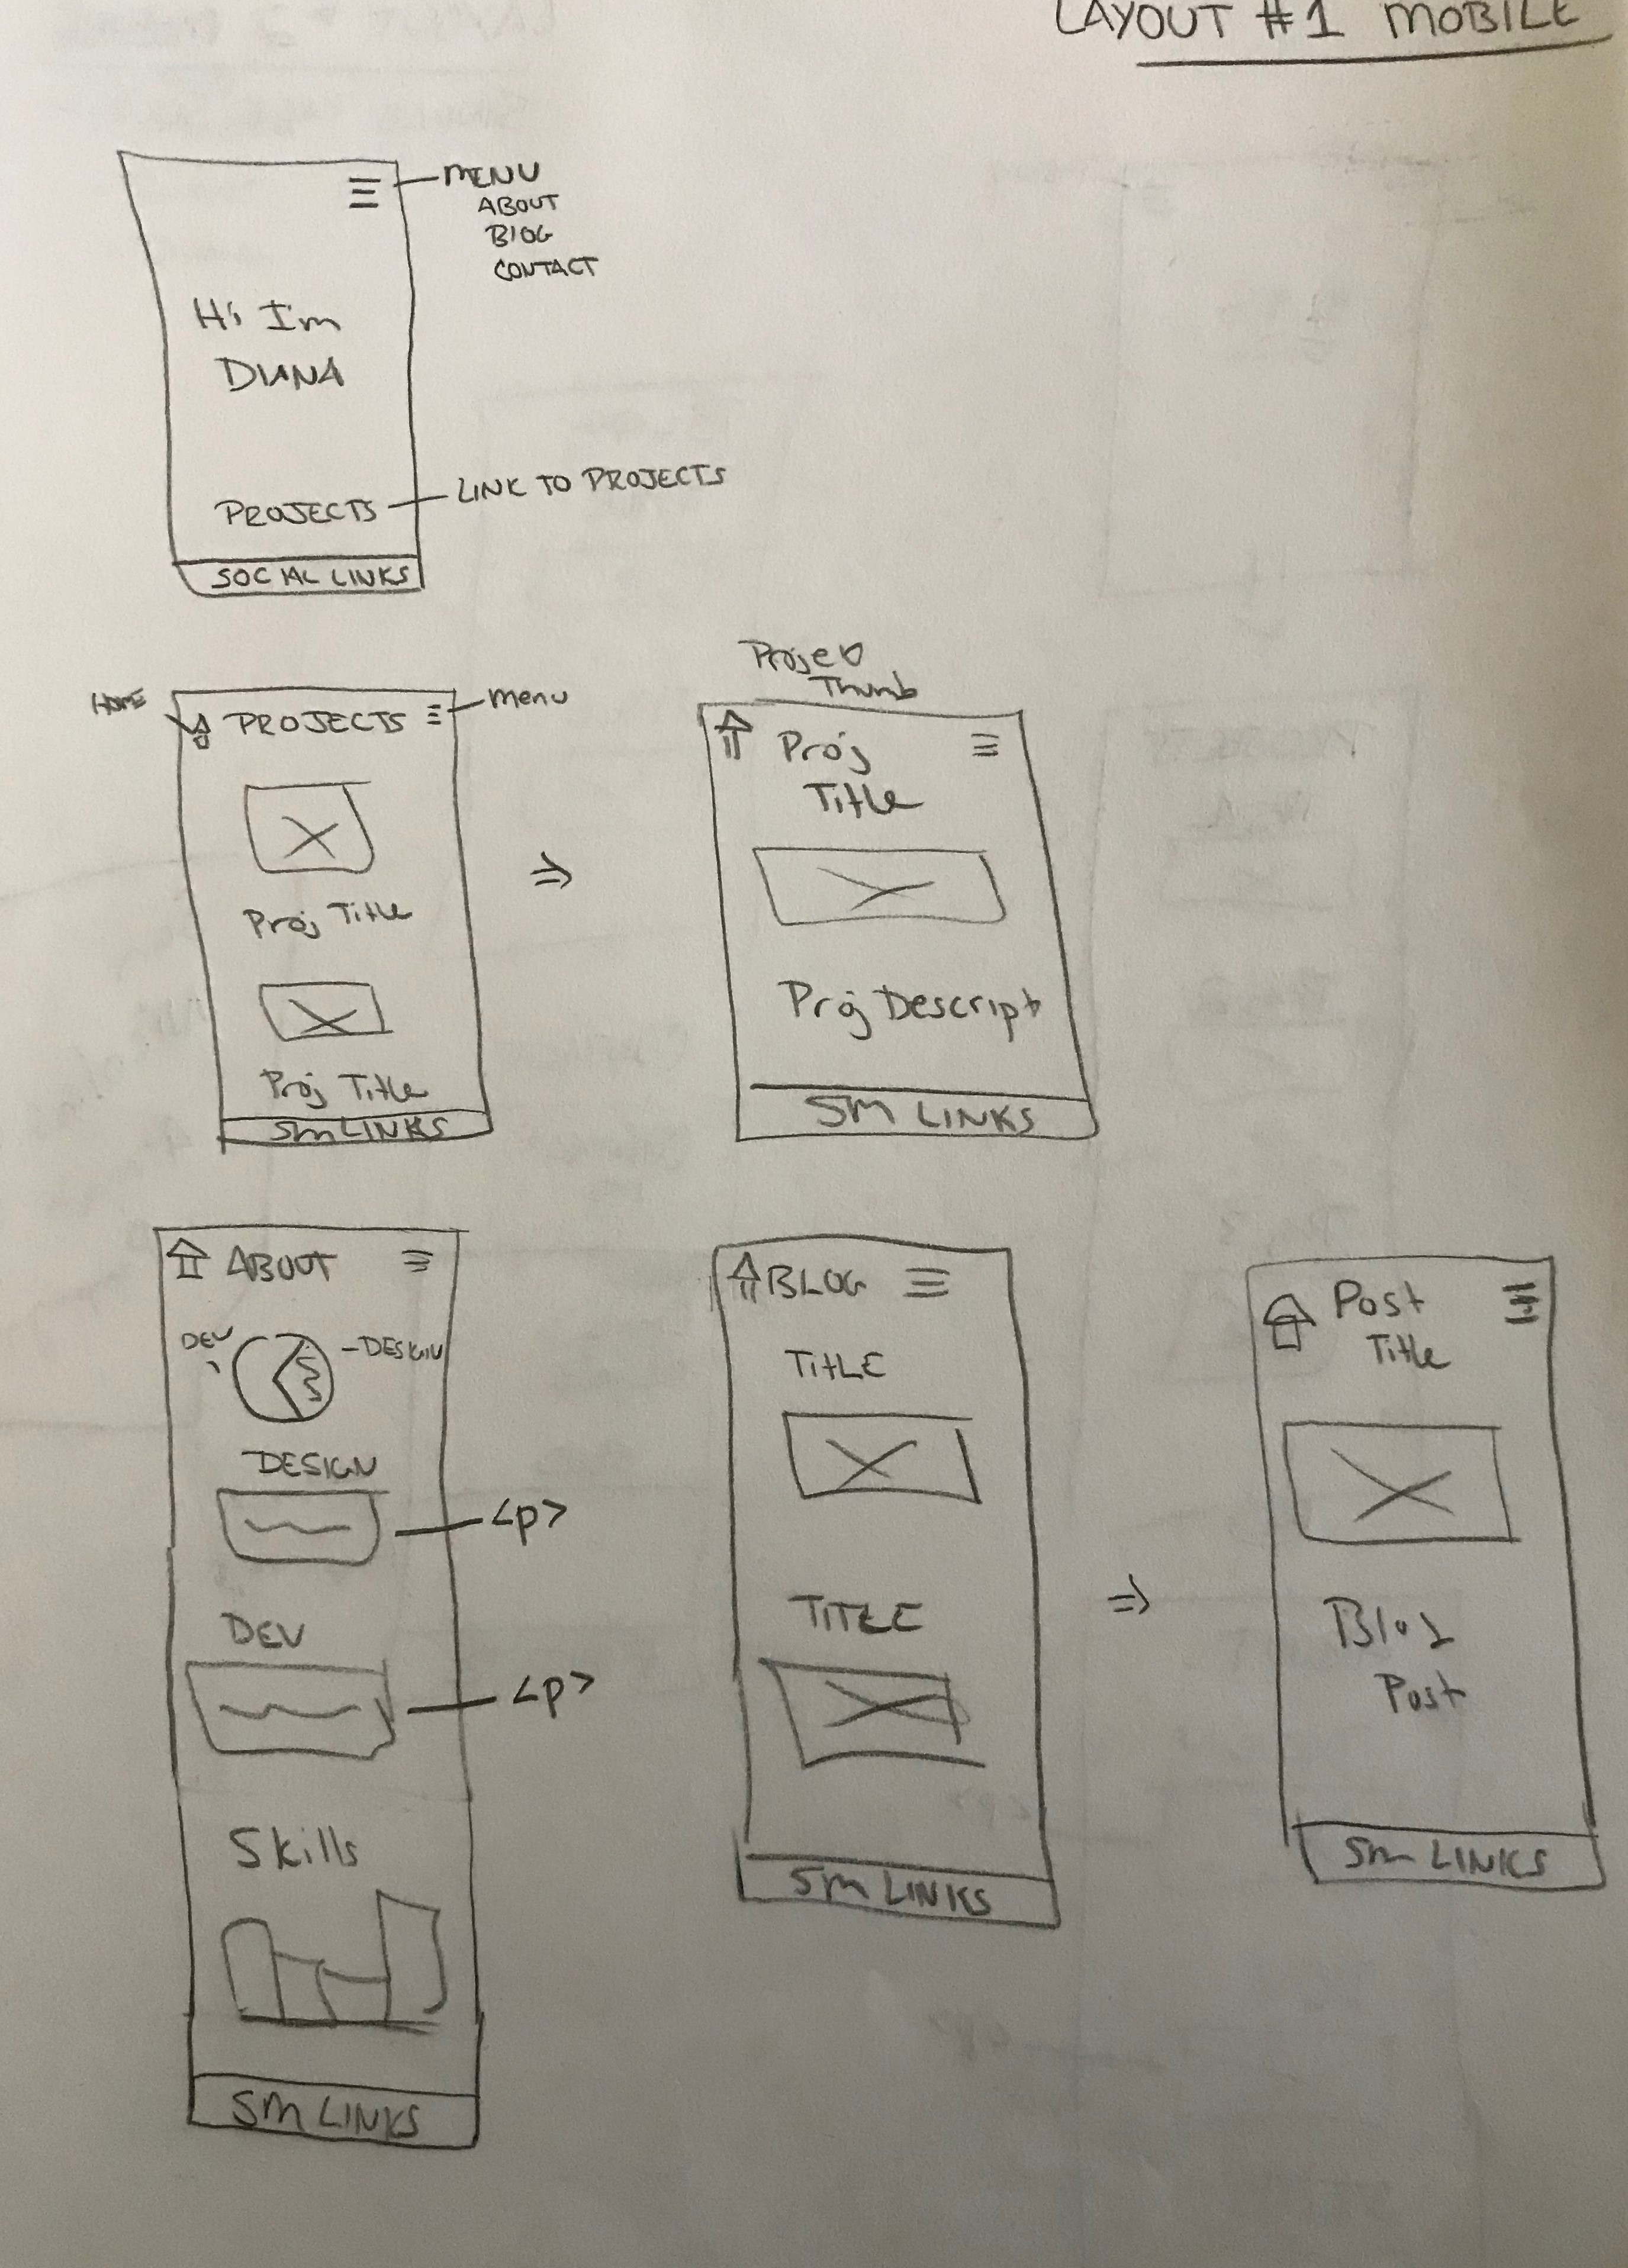 LAYOUT #1 MOBILE
MENU
ABOUT
BlOG
CONTACT
Hi I'm
DIANA
PROJECTS
LINK TO PROJECTS
SOCIAL LINKS
HOME
PROJECTS
menu
Proj Title
Proj Title
SM LINKS
Thumb
Proj
Title
Proj Descript
SM LINKS
ABOUT
DEV
DESIGN
DESIGN
<p>
DEV
<p>
Skills
SM LINKS
BLOG
TITLE
TITLE
SM LINKS
Post
Title
Blog
Post
SM LINKS